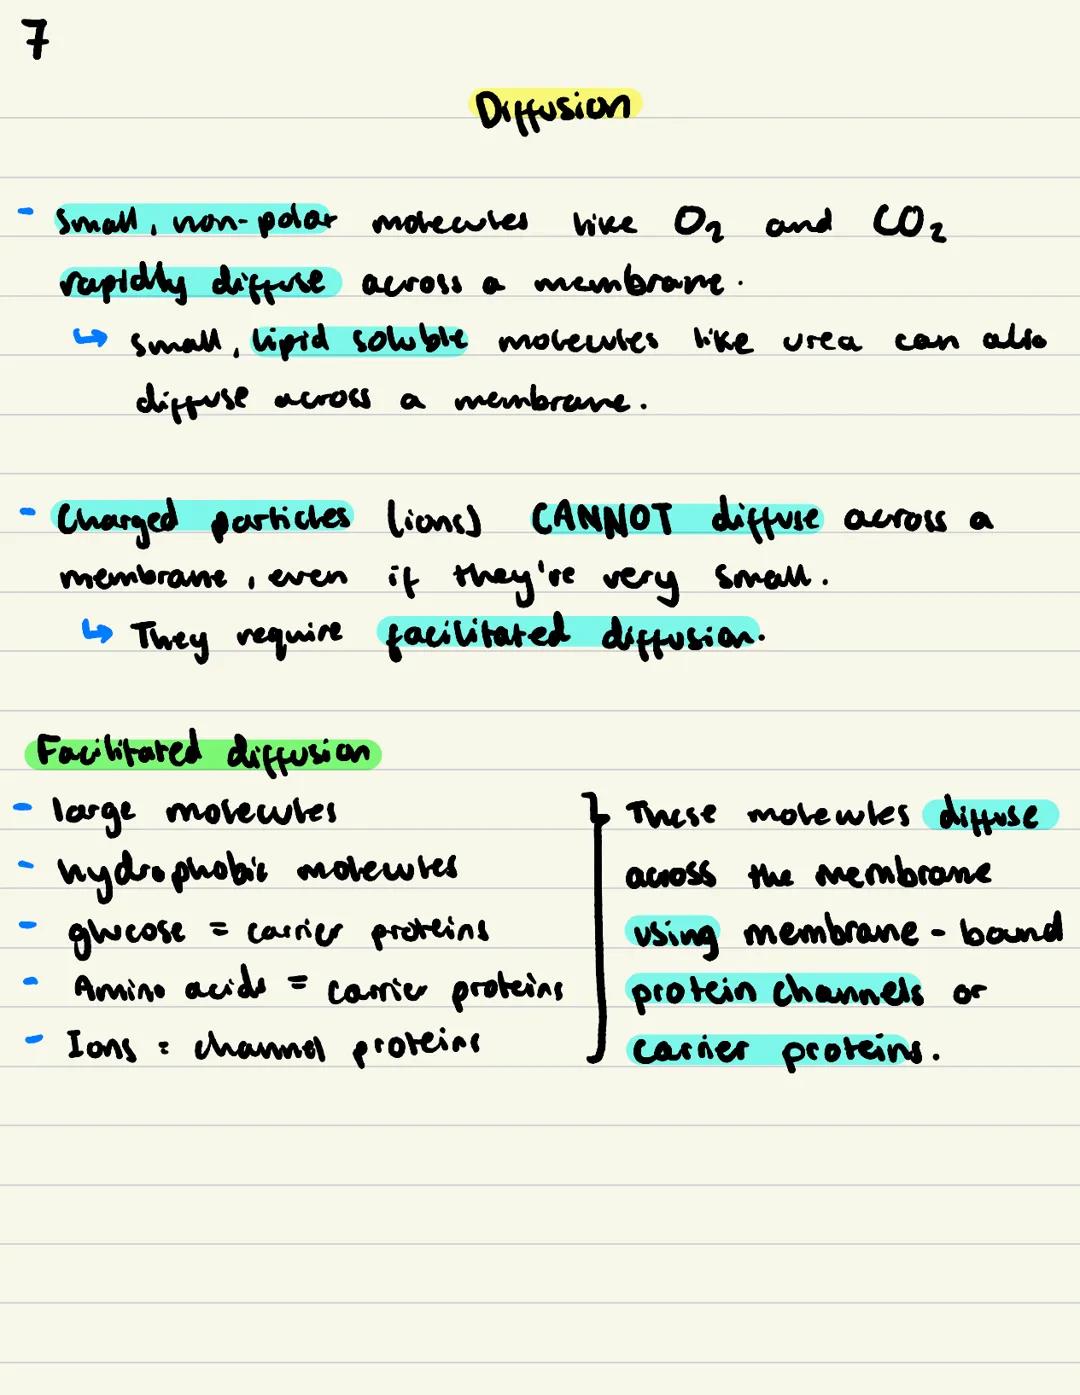 7
Diffusion
- Small, non-polar molecules like O₂ and CO₂
rapidly diffuse across a membrane.
↳ small, lipid soluble molecules like urea can also
diffuse across a membrane.
- Charged particles (ions) CANNOT diffuse across a
membrane, even if they're very small.
↳ They require facilitated diffusion.
Facilitated diffusion
- large molecules
- hydrophobic molecules
- glucose = carrier proteins
- Amino acids = carrier proteins
- Ions = channel proteins
These molecules diffuse
across the membrane
using membrane-bound
protein channels or
carrier proteins.